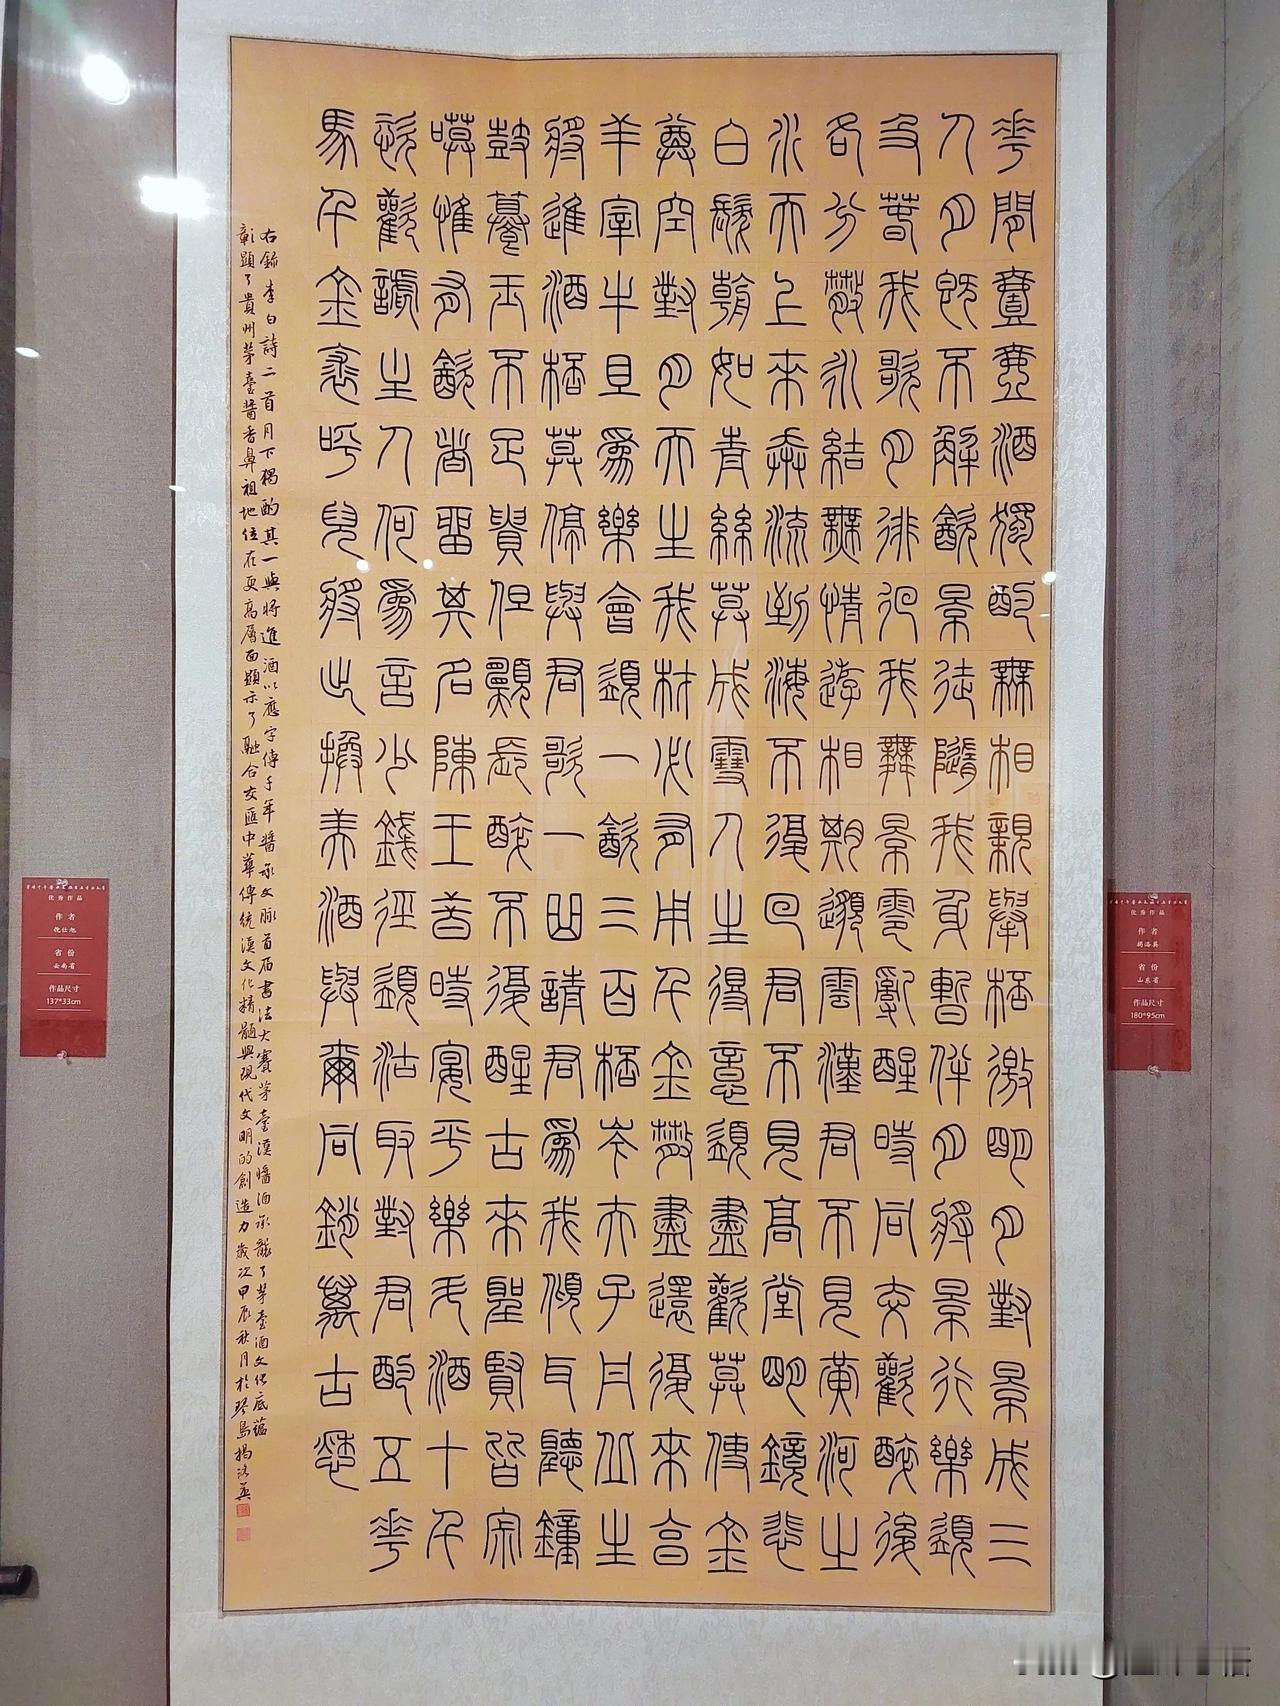 花間壹壺酒獨酌無相親舉杯邀明月對景成三
人月既不解飲景徒隨我身暫伴月將景行樂須
及春我歌月徘徊我舞景零亂醒時同交歡醉後
各分散永結無情遊相期邈雲漢君不見黃河之
水天上來奔流到海不復回君不見高堂明鏡悲
白髮朝如青絲莫成雪人生得意須盡歡莫使金
尊空對月天生我材必有用千金散盡還復來亯
羊宰牛且為樂會須一飲三百杯岑夫子丹丘生
將進酒杯莫停與君歌一曲請君為我傾耳聽鐘
鼓饌玉不足貴但願長醉不復醒古來聖賢皆寂
嗼惟有飲者留其名陳王昔時宴平樂斗酒十千
恣歡謔主人何為言少錢徑須沽取對君酌五花
馬千金裘呼兒將出換美酒與爾同銷萬古愁
右錄李白詩二首月下獨酌其一與將進酒以應字傳千年醬承文脈首屆書法大賽茅臺漢醬酒承襲了茅臺酒文化底蘊
彰顯了貴州茅臺醬香鼻祖地位在更高層面顯示了融合交匯中華傳統漢文化精髓與現代文明的創造力歲次甲辰秋月於琴島楊
优秀作品
作者
省份
山东省
作品尺寸
180*95cm
优秀作品
作者
倪仕旭
省份
云南省
作品尺寸
137*33cm